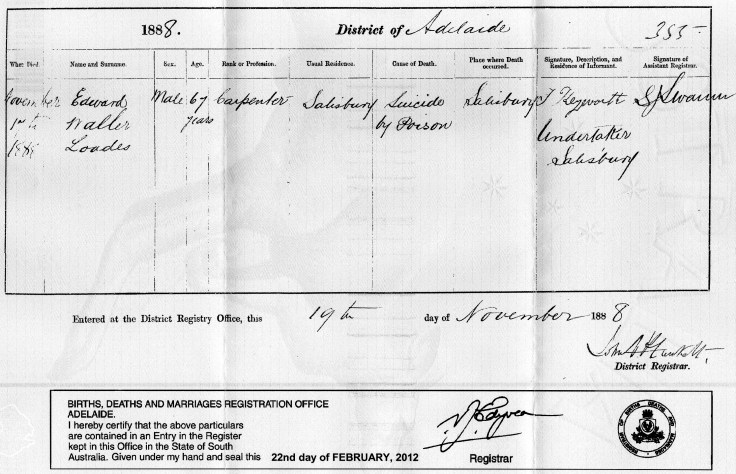 1888. District of Adelaide 355
When Died. Name and Surname. Sex. Age. Rank or Profession. Usual Residence. Cause of Death. Place where Death occurred. Signature, Description, and Residence of Informant. Signature of Assistant Registrar.
November Edward Male 67 Carpenter Salisbury Suicide Salisbury
Waller years by Poison Undertaker
1888 Loades Salisbury
Entered at the District Registry Office, this 19th day of November 1888
District Registrar.
BIRTHS, DEATHS AND MARRIAGES REGISTRATION OFFICE
ADELAIDE.
I hereby certify that the above particulars
are contained in an Entry in the Register
kept in this Office in the State of South
Australia. Given under my hand and seal this 22nd day of FEBRUARY, 2012
Registrar